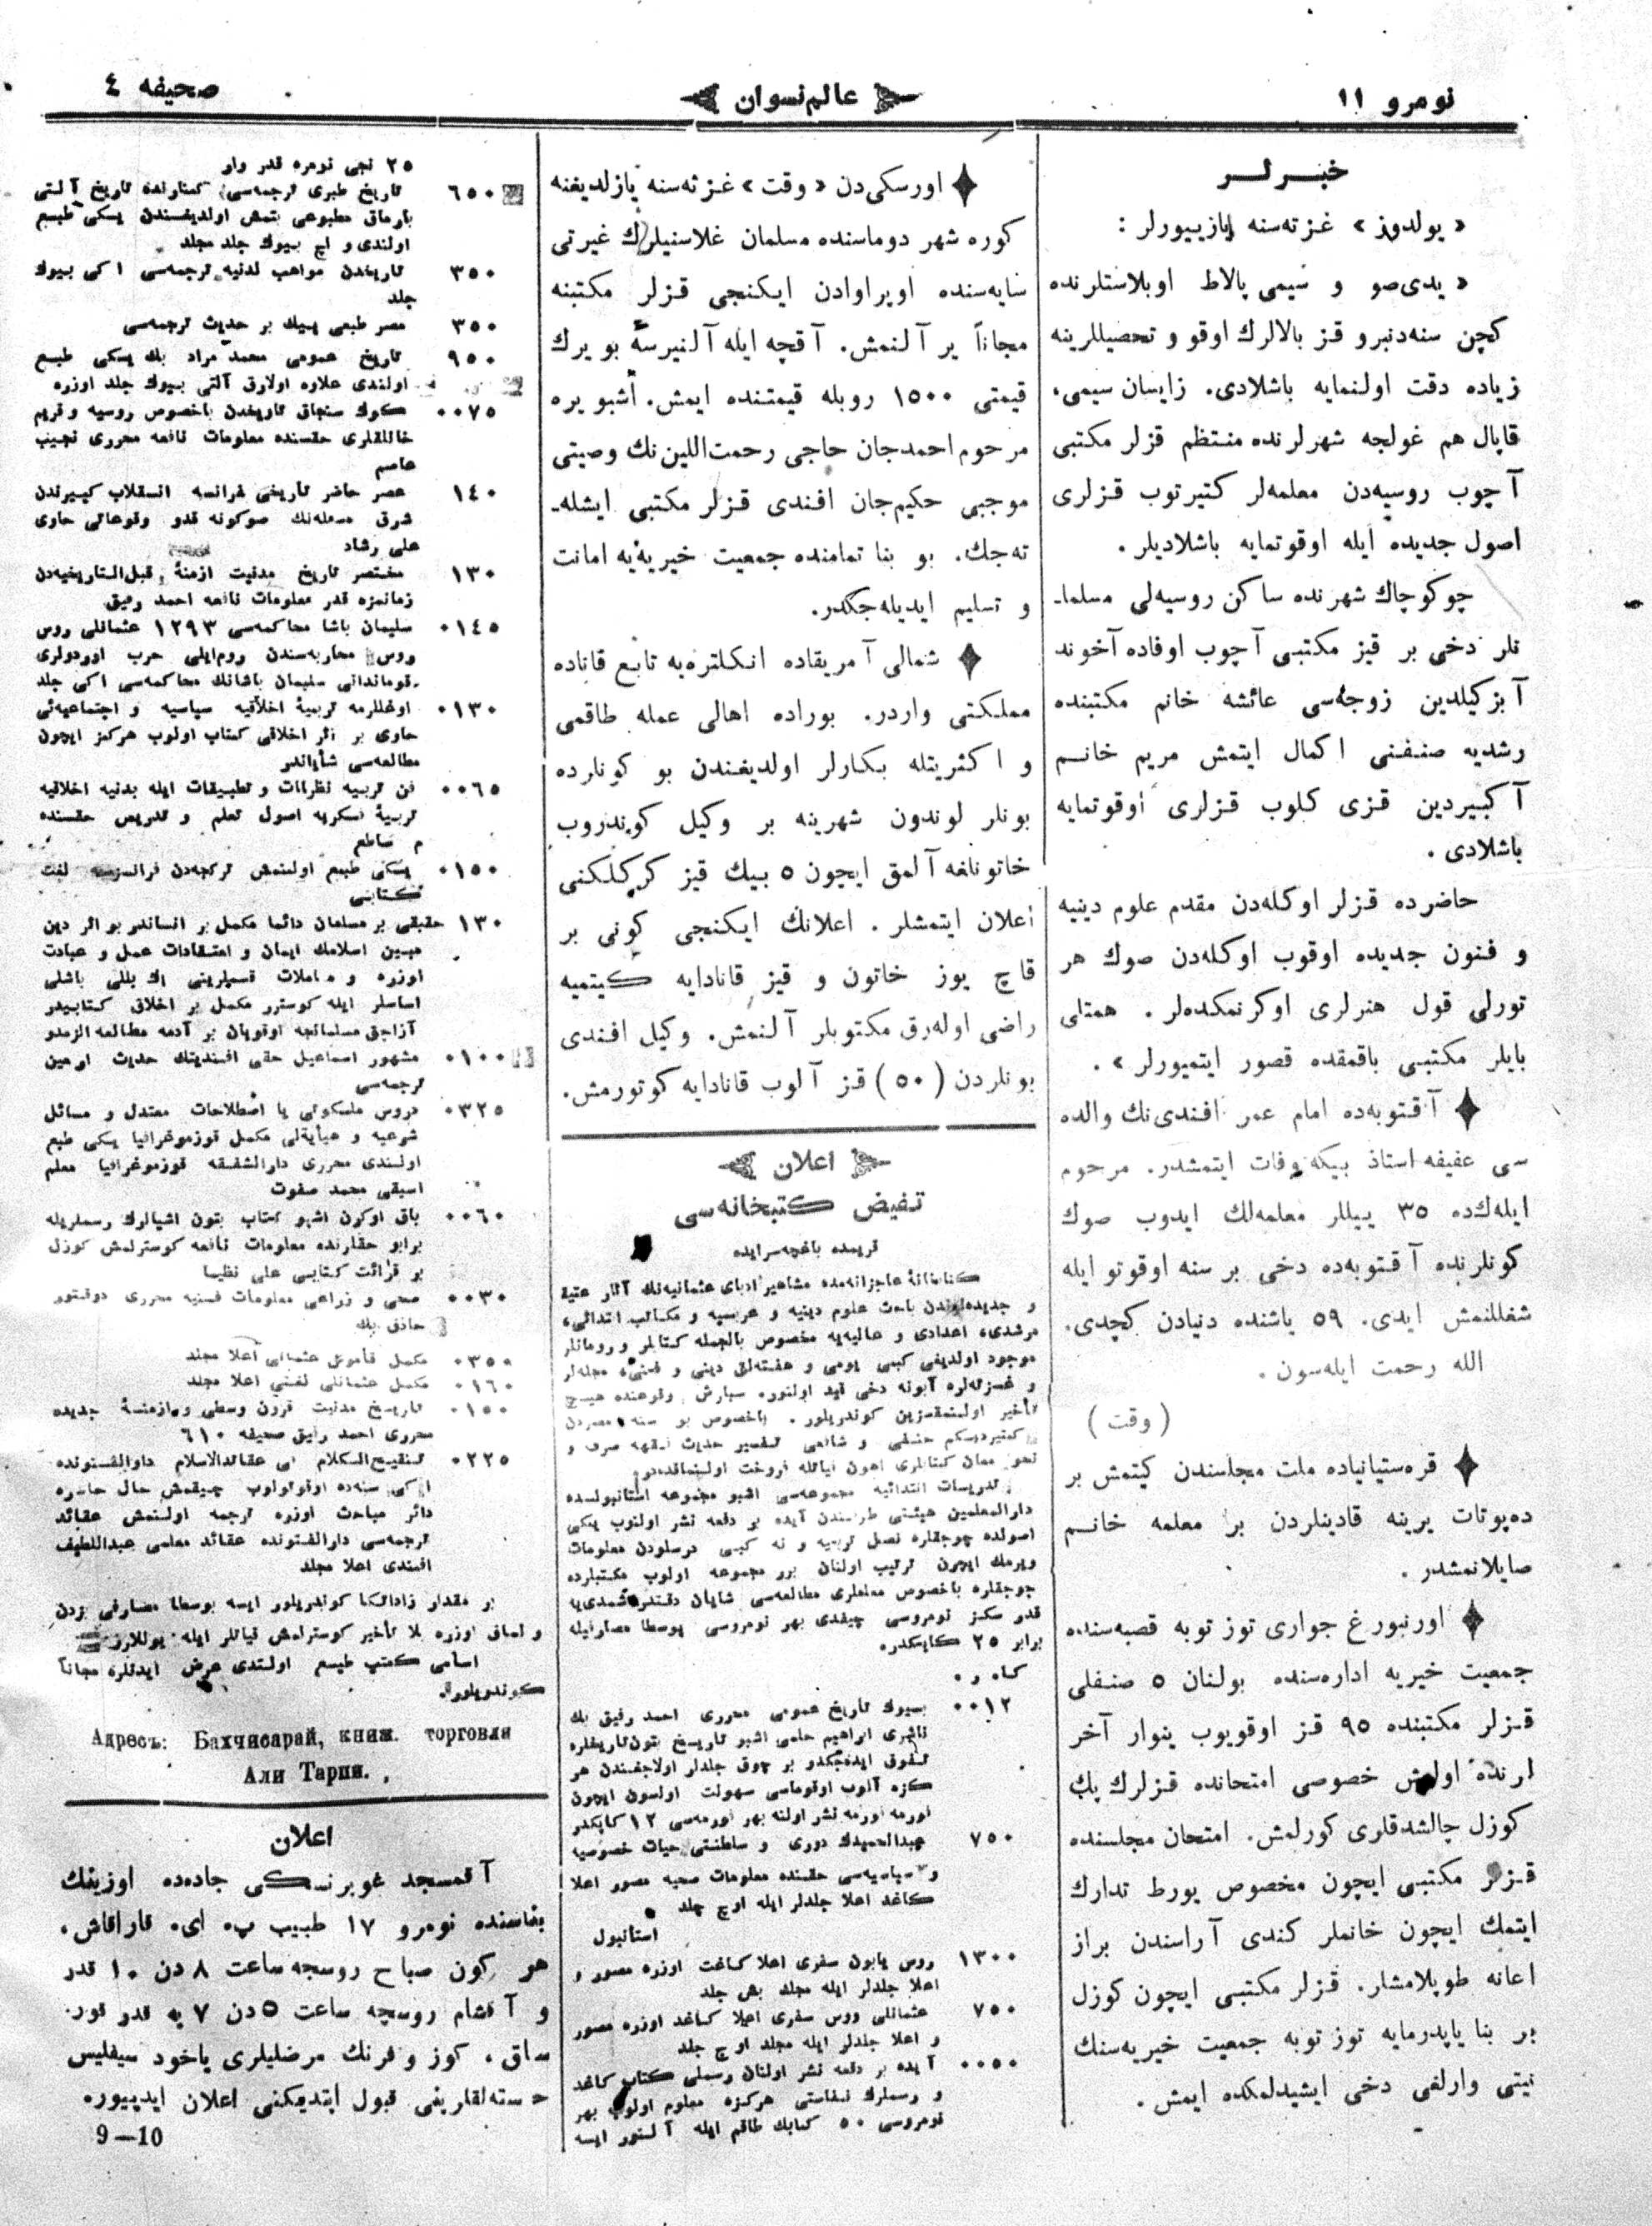 نومرو ١١
عالم نسوان
صحيفه ٤
خبرلر
« يولدوز » غزته‌سنه يازييورلر :
« يدی‌صو و سيمی پالاط اوبلاستلرنده
كچن سنه‌دنبرو قز بالالرك اوقو و تحصيللرينه
زياده دقت اولنمايه باشلادی. زايسان سيمی،
قاپال هم غولجه شهرلرنده منتظم قزلر مكتبی
آچوب روسيه‌دن معلمه‌لر كتيرتوب قزلری
اصول جديده ايله اوقوتمايه باشلاديلر .
چوكوچاك شهرنده ساكن روسيه‌لی مسلما‌ـ
نلر دخی بر قيز مكتبی آچوب اوفاده آخوند
آبزكيلدين زوجه‌سی عائشه خانم مكتبنده
رشديه صنفنی اكمال ايتمش مريم خانم
آكبيردين قزی كلوب قزلری اوقوتمايه
باشلادی .
حاضرده قزلر اوكله‌دن مقدم علوم دينيه
و فنون جديده اوقوب اوكله‌دن صوك هر
تورلی قول هنرلری اوكرنمكده‌لر . همتلی
بايلر مكتبی باقمقده قصور ايتميورلر » .
آقتوبه‌ده امام عمر افندی‌نك والده
سی عفيفه استاذ بيكه وفات ايتمشدر. مرحوم
ايله‌كده ٣٥ ييللر معلمه‌لك ايدوب صوك
كونلرنده آقتوبه‌ده دخی بر سنه اوقوتو ايله
شغللنمش ايدی. ٥٩ ياشنده دنيادن كچدی.
الله رحمت ايله‌سون .
( وقت )
قره‌ستيانياده ملت مجلسندن كيتمش بر
ده‌پوتات يرينه قادينلردن بر معلمه خانم
صايلانمشدر .
اورنبورغ جواری توز توبه قصبه‌سنده
جمعيت خيريه اداره‌سنده بولنان ٥ صنفلی
قزلر مكتبنده ٩٥ قز اوقويوب ينوار آخر
لرنده اولمش خصوصی امتحانده قزلرك پك
كوزل چالشدقلری كورلمش. امتحان مجلسنده
قزلر مكتبی ايچون مخصوص يورط تدارك
ايتمك ايچون خانملر كندی آراسندن براز
اعانه طوپلامشلر. قزلر مكتبی ايچون كوزل
بر بنا ياپدرمايه توز توبه جمعيت خيريه‌سنك
نيتی وارلغی دخی ايشيدلمكده ايمش .
اورسكی‌دن « وقت » غزته‌سنه يازلديغنه
كوره شهر دوماسنده مسلمان غلاسنيلرك غيرتی
سايه‌سنده اوپراوادن ايكنجی قزلر مكتبنه
مجاناً ير آلنمش. آقچه ايله آلنيرسه بو يرك
قيمتی ١٥٠٠ روبله قيمتنده ايمش. اشبو يره
مرحوم احمدجان حاجی رحمت‌اللين‌نك وصيتی
موجبی حكيم‌جان افندی قزلر مكتبی ايشله‌ـ
ته‌جك. بو بنا تمامنده جمعيت خيريه‌يه امانت
و تسليم ايديله‌جكدر.
شمالی آمريقاده انكلتره‌يه تابع قاناده
مملكتی واردر. بوراده اهالی عمله طاقمی
و اكثريتله بكارلر اولديغندن بو كونلرده
بونلر لوندون شهرينه بر وكيل كوندروب
خاتونلغه آلمق ايچون ٥ بيك قيز كركلكنی
اعلان ايتمشلر . اعلانك ايكنجی كونی بر
قاچ يوز خاتون و قيز قانادايه كيتميه
راضی اوله‌رق مكتوبلر آلنمش. وكيل افندی
بونلردن ( ٥٠ ) قز آلوب قانادايه كوتورمش.
اعلان
تفيض كتبخانه‌سی
قريمده باغچه‌سرايده
كتابخانهٔ عاجزانه‌مده مشاهير ادبای عثمانيه‌نك آثار عتيقه
و جديده‌لرندن باحث علوم دينيه و عربيه و مكاتب ابتدائی،
مرشدی، اعدادی و عاليه‌يه مخصوص بالجمله كتابلر و رومانلر
موجود اولديغی كبی يومی و هفته‌لق دينی و فنی، مجله‌لر
و غزته‌لره آبونه دخی قيد اولنور. سپارش وقوعنده هيچ
تأخير اولنمقسزين كوندريلور . باخصوص بو سنه مصردن
كتيرديكم حنفی و شافعی تفسير حديث فقهه صرف و
نحو معان كتابلری اهون فيأتله فروخت اولنماقده‌در.
تدريسات ابتدائيه مجموعه‌سی اشبو مجموعه استانبولده
دارالمعلمين هيئتی طرفندن آيده بر دفعه نشر اولنوب يكی
اصولده چوجقلره نصل تربيه و نه كبی درسلردن معلومات
ويرمك ايچون ترتيب اولنان برر مجموعه اولوب مكتبلرده
چوجقلره باخصوص معلملری مطالعه‌سی شايان دقتدر شمدی‌يه
قدر سكز نومروسی چيقدی بهر نومروسی پوسطا مصارفيله
برابر ٢٥ كاپكدر.
٠٠١٢ بيوك تاريخ عمومی محرری احمد رفيق بك
ناشری ابراهيم حلمی اشبو تاريخ بتون تاريخلره
تفوق ايده‌جكدر بر چوق جلدلر اولاجغندن هر
كزه آلوب اوقوماسی سهولت اولسون ايچون
فورمه فورمه نشر اولنه بهر فورمه‌سی ١٢ كاپكدر
٧٥٠ عبدالحميدك دوری و سلطنتی حيات خصوصيه
و سياسيه‌سی حقنده معلومات صحيه مصور اعلا
كاغد اعلا جلدلر ايله اوچ جلد
استانبول
١٣٠٠ روس ياپون سفری اعلا كاغت اوزره مصور و
اعلا جلدلر ايله مجلد بش جلد
٧٥٠ عثمانلی روس سفری اعلا كاغد اوزره مصور
و اعلا جلدلر ايله مجلد اوچ جلد
٠٠٥٠ آيده بر دفعه نشر اولنان رسملی كتاب كاغد
و رسملرك نفاستی هركزه معلوم اولوب بهر
نومروسی ٥٠ كپابك طاقم ايله آلنور ايسه
٢٥ نجی نومره قدر وار
٦٥٠ تاريخ طبری ترجمه‌سی كنارنده تاريخ آلتی
پارماق مطبوعی بتمش اولديغندن يكی طبع
اولندی و اچ بيوك جلد مجلد
٣٥٠ تاريخدن مواهب لدنيه ترجمه‌سی اكی بيوك
جلد
٣٥٠ مصر طبعی بيك بر حديث ترجمه‌سی
٩٥٠ تاريخ عمومی محمد مراد بك يكی طبع
اولندی علاوه اولارق آلتی بيوك جلد اوزره
٠٠٧٥ كوك سنجاق تاريخدن باخصوص روسيه و قريم
خانلقلری حقنده معلومات نافعه محرری نجيب
عاصم
١٤٠ عصر حاضر تأريخی فرانسه انقلاب كبيرندن
شرق مسئله‌نك صوكونه قدر وقوعاتی حاوی
علی رشاد
١٣٠ مختصر تاريخ مدنيت ازمنهٔ قبل‌التاريخيه‌دن
زمانمزه قدر معلومات نافعه احمد رفيق
٠١٤٥ سليمان باشا محاكمه‌سی ١٢٩٣ عثمانلی روس
روس محاربه‌سندن روم‌ايلی حرب اوردولری
قوماندانی سليمان باشانك محاكمه‌سی اكی جلد
٠١٣٠ اوغللرمه تربيهٔ اخلاقيه سياسيه و اجتماعيه‌ئی
حاوی بر اثر اخلاقی كتاب اولوب هركز ايچون
مطالعه‌سی شاياندر
٠٠٦٥ فن تربيه نظرات و تطبيقات ايله بدنيه اخلاقيه
تربيهٔ فكريه اصول تعلم و تدريس حقنده
م ساطع
٠١٥٠ يكی طبع اولنمش تركجه‌دن فرانسزجه لغت
كتابی
١٣٠ حقيقی بر مسلمان دائما مكمل بر انساندر بو اثر دين
مبين اسلامك ايمان و اعتقادات عمل و عبادت
اوزره و معاملات قسملرينی اك بللی باشلی
اساسلر ايله كوسترر مكمل بر اخلاق كتابيدر
آزاجق مسلمانجه اوقويان بر آدمه مطالعه الزمدر
٠١٠٠ مشهور اسماعيل حقی افندينك حديث اربعين
ترجمه‌سی
٠٣٢٥ دروس ملكوتی يا اصطلاحات معتدل و مسائل
شرعيه و هيأيه‌لی مكمل قوزموغرافيا يكی طبع
اولندی محرری دارالشفقه قوزموغرافيا معلم
اسبقی محمد صفوت
٠٠٦٠ باق اوكرن اشبو كتاب بتون اشيالرك رسملريله
برابر حقلرنده معلومات نافعه كوسترلمش كوزل
بر قرائت كتابی علی نظيما
٠٠٣٠ صحی و زراعی معلومات فنيه محرری دوقتور
حاذق بك
٠٣٥٠ مكمل قاموس عثمانی اعلا مجلد
٠١٦٠ مكمل عثمانلی لغتی اعلا مجلد
٠١٥٠ تاريخ مدنيت قرون وسطی و ازمنهٔ جديده
محرری احمد رفيق صحيفه ٦١٠
٠٢٢٥ تنقيح‌الكلام فی عقائدالاسلام دارالفنونده
اكی سنه‌ده اوقوتولوب چيقمش حال حاضره
دائر مباحث اوزره ترجمه اولنمش عقائد
ترجمه‌سی دارالفنونده عقائد معلمی عبداللطيف
افندی اعلا مجلد
بر مقدار زاداتكا كوندريلور ايسه پوسطا مصارفی بزدن
اوزره بلا تأخير كوسترلمش فياتلر ايله يوللارز
اسامی كتب طبع اولندی عرض ايدنلره مجاناً
كوندريلور.
Адресъ: Бахчисарай, книж. торговля
Али Тарпи.
اعلان
آقمسجد غوبرنسكی جاده‌ده اوزينك
بناسنده نومرو ١٧ طبيب پ. ای. قاراقاش،
هر كون صباح روسجه ساعت ٨ دن ١٠ قدر
و آقشام روسچه ساعت ٥ دن ٧ يه قدر قور.
ساق ، كوز و فرنك مرضليلری ياخود سيفليس
خسته‌لقلرينی قبول ايتديكنی اعلان ايدييور.
9—10